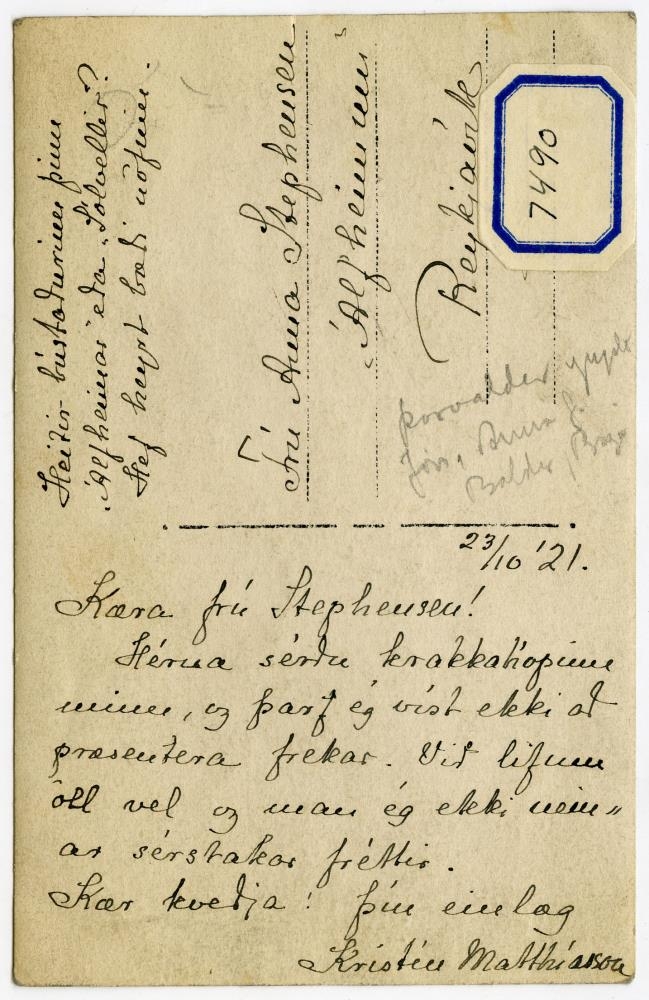 Heitir bústaðurinn þinn
„Álfheimar" eða „Sólvellir"?
Hef heyrt bæði nöfnin.
Frú Anna Stephensen
„Álfheimum"
Reykjavík
7490
Þorvaldur
Anna
Baldur
23/10 '21.
Kæra frú Stephensen!
Hérna sérðu krakkahópinn
minn, og þarf ég víst ekki að
præsentera frekar. Við lifum
öll vel og man ég ekki nein„
ar sérstakar fréttir.
Kær kveðja! Þín einlæg
Kristín Matthíasson